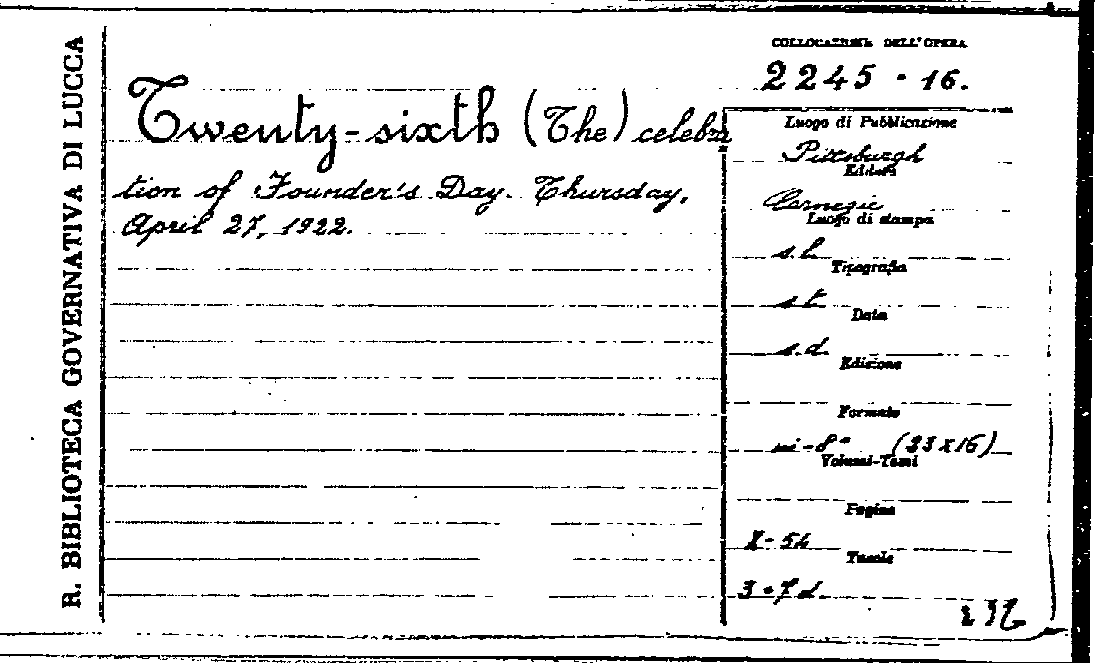 R. BIBLIOTECA GOVERNATIVA DI LUCCA
COLLOCAZIONE DELL'OPERA
2245 - 16.
Twenty-sixth (The) celebra
tion of Founder's Day. Thursday,
April 27, 1922.
Luogo di Pubblicazione
Pittsburgh
Editore
Carnegie
Luogo di stampa
s.l.
Tipografia
s.t.
Data
s.d.
Edizione
Formato
in-8° (23x16)
Volumi-Tomi
Pagine
X-54
Tavole